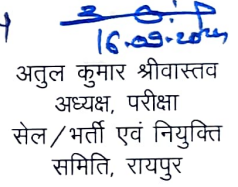 16-09-2024
अतुल कुमार श्रीवास्तव
अध्यक्ष, परीक्षा
सेल/भर्ती एवं नियुक्ति
समिति, रायपुर